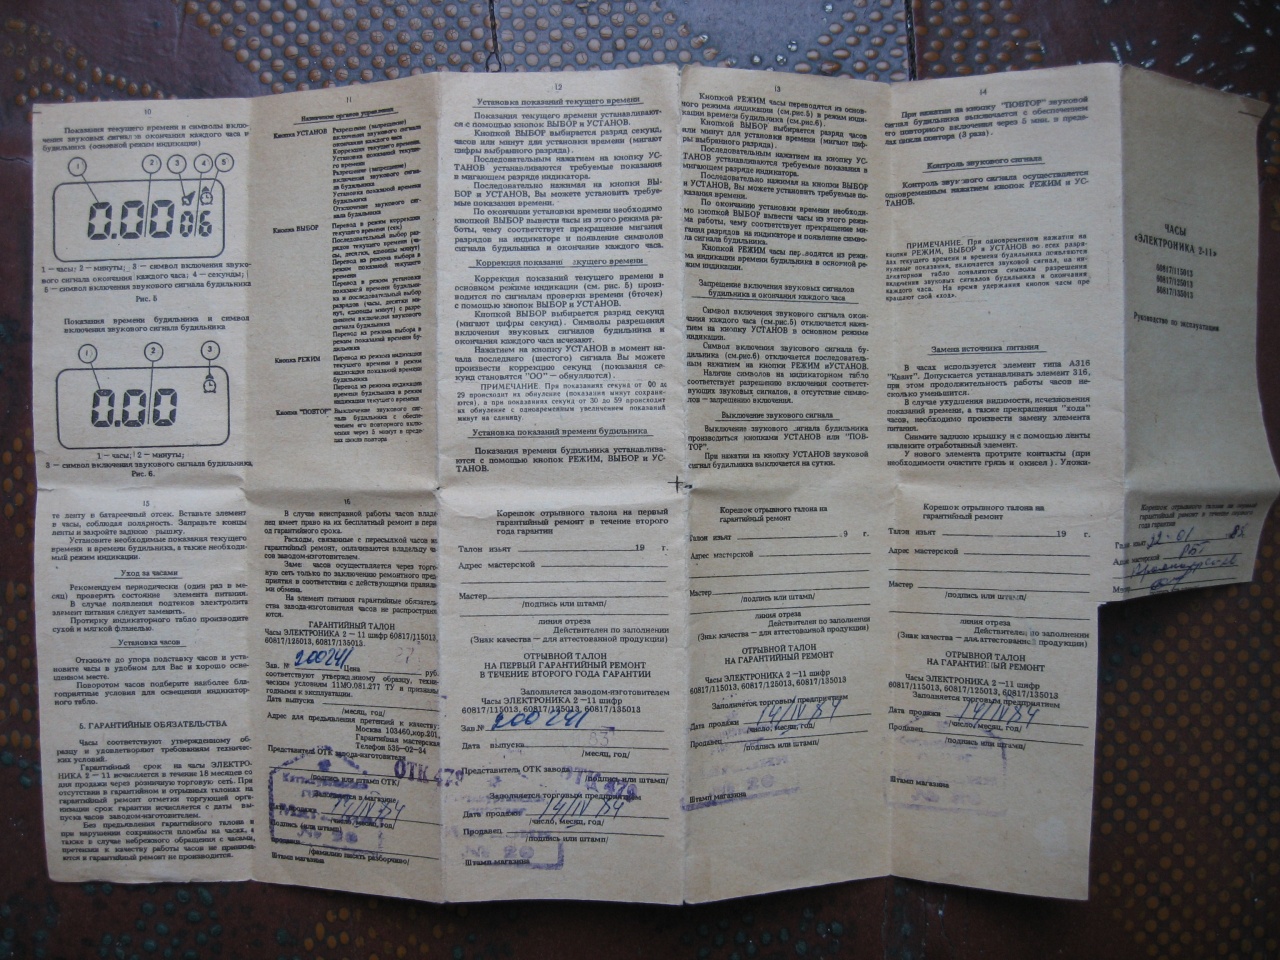 10
Показания текущего времени и символы вклю-
чения звуковых сигналов окончания каждого часа и
будильника (основной режим индикации)
1 2 3 4 5
0.00 06
1 — часы; 2 — минуты; 3 — символ включения звуко-
вого сигнала окончания каждого часа; 4 — секунды;
5 — символ включения звукового сигнала будильника
Рис. 5
Показания времени будильника и символ
включения звукового сигнала будильника
1 2 3
0.00
1 — часы; 2 — минуты;
3 — символ включения звукового сигнала будильника
Рис. 6.
11
Назначение органов управления
Кнопка УСТАНОВ
Разрешение (запрещение)
включения звукового сигнала
окончания каждого часа
Коррекция показаний текуще-
го времени
Установка показаний текуще-
го времени
Разрешение (запрещение)
включения звукового сигна-
ла будильника
Установка показаний времени
будильника
Отключение звукового сиг-
нала будильника
Кнопка ВЫБОР
Перевод в режим коррекции
текущего времени (сек)
Кнопка РЕЖИМ
Перевод из режима индикации
текущего времени в режим
индикации времени
будильника
Перевод из режима индикации
времени будильника в режим
индикации текущего времени
Кнопка "ПОВТОР"
Выключение звукового сиг-
нала будильника с обеспече-
нием его повторного включе-
ния через 5 минут в преде-
лах цикла повтора
12
Установка показаний текущего времени
Показания текущего времени устанавливают-
ся с помощью кнопок ВЫБОР и УСТАНОВ.
Кнопкой ВЫБОР выбирается разряд секунд,
часов или минут для установки времени (мигают
цифры выбранного разряда).
Последовательным нажатием на кнопку УС-
ТАНОВ устанавливаются требуемые показания
в мигающем разряде индикатора.
Последовательно нажимая на кнопки ВЫ-
БОР и УСТАНОВ, Вы можете установить требуе-
мые показания времени.
По окончании установки времени необходимо
кнопкой ВЫБОР вывести часы из этого режима ра-
боты, чему соответствует прекращение мигания
разрядов на индикаторе и появление символов
сигнала будильника и окончания каждого часа.
Коррекция показаний текущего времени
Коррекция показаний текущего времени в
основном режиме индикации (см. рис. 5) произ-
водится по сигналам проверки времени (6точек)
с помощью кнопок ВЫБОР и УСТАНОВ.
Кнопкой ВЫБОР выбирается разряд секунд
(мигают цифры секунд). Символы разрешения
включения звуковых сигналов будильника и
окончания каждого часа исчезают.
Нажатием на кнопку УСТАНОВ в момент на-
чала последнего (шестого) сигнала Вы можете
произвести коррекцию секунд (показания се-
кунд становятся "ОО" — обнуляются).
ПРИМЕЧАНИЕ. При показаниях секунд от 00 до
29 происходит их обнуление (показания минут сохраня-
ются), а при показаниях секунд от 30 до 59 происходит
их обнуление с одновременным увеличением показаний
минут на единицу.
Установка показаний времени будильника
Показания времени будильника устанавлива-
ются с помощью кнопок РЕЖИМ, ВЫБОР и УС-
ТАНОВ.
13
Кнопкой РЕЖИМ часы переводятся из основ-
ного режима индикации (см.рис.5) в режим инди-
кации времени будильника (см.рис.6).
Кнопкой ВЫБОР выбирается разряд часов
или минут для установки времени (мигают циф-
ры выбранного разряда).
Последовательным нажатием на кнопку УС-
ТАНОВ устанавливаются требуемые показания в
мигающем разряде индикатора.
Последовательно нажимая на кнопки ВЫБОР
и УСТАНОВ, Вы можете установить требуемые по-
казания времени.
По окончании установки времени необходи-
мо кнопкой ВЫБОР вывести часы из этого режи-
ма работы, чему соответствует прекращение ми-
гания разрядов на индикаторе и появление символа
сигнала будильника.
Кнопкой РЕЖИМ часы переводятся из режи-
ма индикации времени будильника в основной ре-
жим индикации.
Запрещение включения звуковых сигналов
будильника и окончания каждого часа
Символ включения звукового сигнала окон-
чания каждого часа (см. рис.5) отключается нажа-
тием на кнопку УСТАНОВ в основном режиме
индикации.
Символ включения звукового сигнала бу-
дильника (см.рис.6) отключается последователь-
ным нажатием на кнопки РЕЖИМ и УСТАНОВ.
Наличие символов на индикаторном табло
соответствует разрешению включения соответст-
вующих звуковых сигналов, а отсутствие симво-
лов — запрещению включения.
Выключение звукового сигнала
Выключение звукового сигнала будильника
производится кнопками УСТАНОВ или "ПОВ-
ТОР".
При нажатии на кнопку УСТАНОВ звуковой
сигнал будильника выключается на сутки.
14
При нажатии на кнопку "ПОВТОР" звуковой
сигнал будильника выключается с обеспечением
его повторного включения через 5 мин. в преде-
лах цикла повтора (3 раза).
Контроль звукового сигнала
Контроль звукового сигнала осуществляется
одновременным нажатием кнопок РЕЖИМ и УС-
ТАНОВ.
ПРИМЕЧАНИЕ. При одновременном нажатии на
кнопки РЕЖИМ, ВЫБОР и УСТАНОВ во всех разря-
дах текущего времени и времени будильника появляются
нулевые показания, включаются звуковые сигналы, на ин-
дикаторном табло появляются символы разрешения
включения звуковых сигналов будильника и окончания
каждого часа. На время удержания кнопок часы пре-
кращают свой «ход».
Замена источника питания
В часах используется элемент типа А316
"Квант". Допускается устанавливать элемент 316,
при этом продолжительность работы часов не-
сколько уменьшится.
В случае ухудшения видимости, исчезновения
показаний времени, а также прекращения "хода"
часов, необходимо произвести замену элемента
питания.
Снимите заднюю крышку и с помощью ленты
извлеките отработанный элемент.
У нового элемента протрите контакты (при
необходимости очистите грязь и окисел). Уложи-
ЧАСЫ
«ЭЛЕКТРОНИКА 2-11»
60817/115013
60817/125013
60817/135013
Руководство по эксплуатации
15
те ленту в батарейный отсек. Вставьте элемент
в часы, соблюдая полярность. Заправьте концы
ленты и закройте заднюю крышку.
Установите необходимые показания текущего
времени и времени будильника, а также необходи-
мый режим индикации.
Уход за часами
Рекомендуем периодически (один раз в ме-
сяц) проверять состояние элемента питания.
В случае появления подтеков электролита
элемент питания следует заменить.
Протирку индикаторного табло производите
сухой и мягкой фланелью.
Установка часов
Откиньте до упора подставку часов и уста-
новите часы в удобном для Вас и хорошо осве-
щенном месте.
Поворотом часов подберите наиболее бла-
гоприятные условия для освещения индикатор-
ного табло.
5. ГАРАНТИЙНЫЕ ОБЯЗАТЕЛЬСТВА
Часы соответствуют утвержденному об-
разцу и удовлетворяют требованиям техничес-
ких условий.
Гарантийный срок на часы ЭЛЕКТРО-
НИКА 2 — 11 исчисляется в течение 18 месяцев со
дня продажи через розничную торговую сеть. При
отсутствии в гарантийном и отрывных талонах на
гарантийный ремонт отметки торгующей орга-
низации срок гарантии исчисляется с даты вы-
пуска часов заводом-изготовителем.
Без предъявления гарантийного талона и
при нарушении сохранности пломбы на часах, а
также в случае небрежного обращения с часами,
претензии к качеству работы часов не принима-
ются и гарантийный ремонт не производится.
16
В случае неисправной работы часов владе-
лец имеет право на их бесплатный ремонт в пери-
од гарантийного срока.
Расходы, связанные с пересылкой часов на
гарантийный ремонт, оплачиваются владельцу ча-
сов заводом-изготовителем.
Замена часов осуществляется через торго-
вую сеть только по заключению ремонтного пред-
приятия в соответствии с действующими правила-
ми обмена.
На элемент питания гарантийные обязатель-
ства завода-изготовителя часов не распростран-
яются.
ГАРАНТИЙНЫЙ ТАЛОН
Часы ЭЛЕКТРОНИКА 2 — 11 шифр 60817/115013,
60817/125013, 60817/135013.
Зав. № 200241 Цена руб.
соответствуют утвержденному образцу, техни-
ческим условиям 11МО.081.277 ТУ и признаны
годными к эксплуатации.
Дата выпуска
/месяц, год/
Адрес для предъявления претензий к качеству:
Москва 103460,кор.201,
Гарантийная мастерская
Телефон 535-02-54
Представитель ОТК завода-изготовителя
ОТК 479
/подпись или штамп ОТК/
Заполняется в магазине
Дата продажи 14/IV 84
/число, месяц, год/
Подпись (или штамп)
№ 20
/фамилию писать разборчиво/
Штамп магазина
Корешок отрывного талона на первый
гарантийный ремонт в течение второго
года гарантии
Талон изъят 19 г.
Адрес мастерской
Мастер
/подпись или штамп/
линия отреза
Действителен по заполнении
(Знак качества — для аттестованной продукции)
ОТРЫВНОЙ ТАЛОН
НА ПЕРВЫЙ ГАРАНТИЙНЫЙ РЕМОНТ
В ТЕЧЕНИЕ ВТОРОГО ГОДА ГАРАНТИИ
Заполняется заводом-изготовителем
Часы ЭЛЕКТРОНИКА 2 — 11 шифр
60817/115013, 60817/125013, 60817/135013
Зав № 200241
Дата выпуска 83
/месяц, год/
Представитель ОТК завода ОТК 479
/подпись или штамп/
Заполняется торговым предприятием
Дата продажи 14/IV 84
/число, месяц, год/
Продавец
/подпись или штамп/
№ 20
Штамп магазина
Корешок отрывного талона на
гарантийный ремонт
Талон изъят 9 г.
Адрес мастерской
Мастер
/подпись или штамп/
линия отреза
Действителен по заполнении
(Знак качества — для аттестованной продукции)
ОТРЫВНОЙ ТАЛОН
НА ГАРАНТИЙНЫЙ РЕМОНТ
Часы ЭЛЕКТРОНИКА 2 — 11 шифр
60817/115013, 60817/125013, 60817/135013
Заполняется торговым предприятием
Дата продажи 14/IV 84
/число, месяц, год/
Продавец
/подпись или штамп/
Штамп магазина
Корешок отрывного талона на
гарантийный ремонт
Талон изъят 19 г.
Адрес мастерской
Мастер
/подпись или штамп/
линия отреза
Действителен по заполнении
(Знак качества — для аттестованной продукции)
ОТРЫВНОЙ ТАЛОН
НА ГАРАНТИЙНЫЙ РЕМОНТ
Часы ЭЛЕКТРОНИКА 2 — 11 шифр
60817/115013, 60817/125013, 60817/135013
Заполняется торговым предприятием
Дата продажи 14/IV 84
/число, месяц, год/
Продавец
/подпись или штамп/
Штамп магазина
Корешок отрывного талона на первый
гарантийный ремонт в течение второго
года гарантии